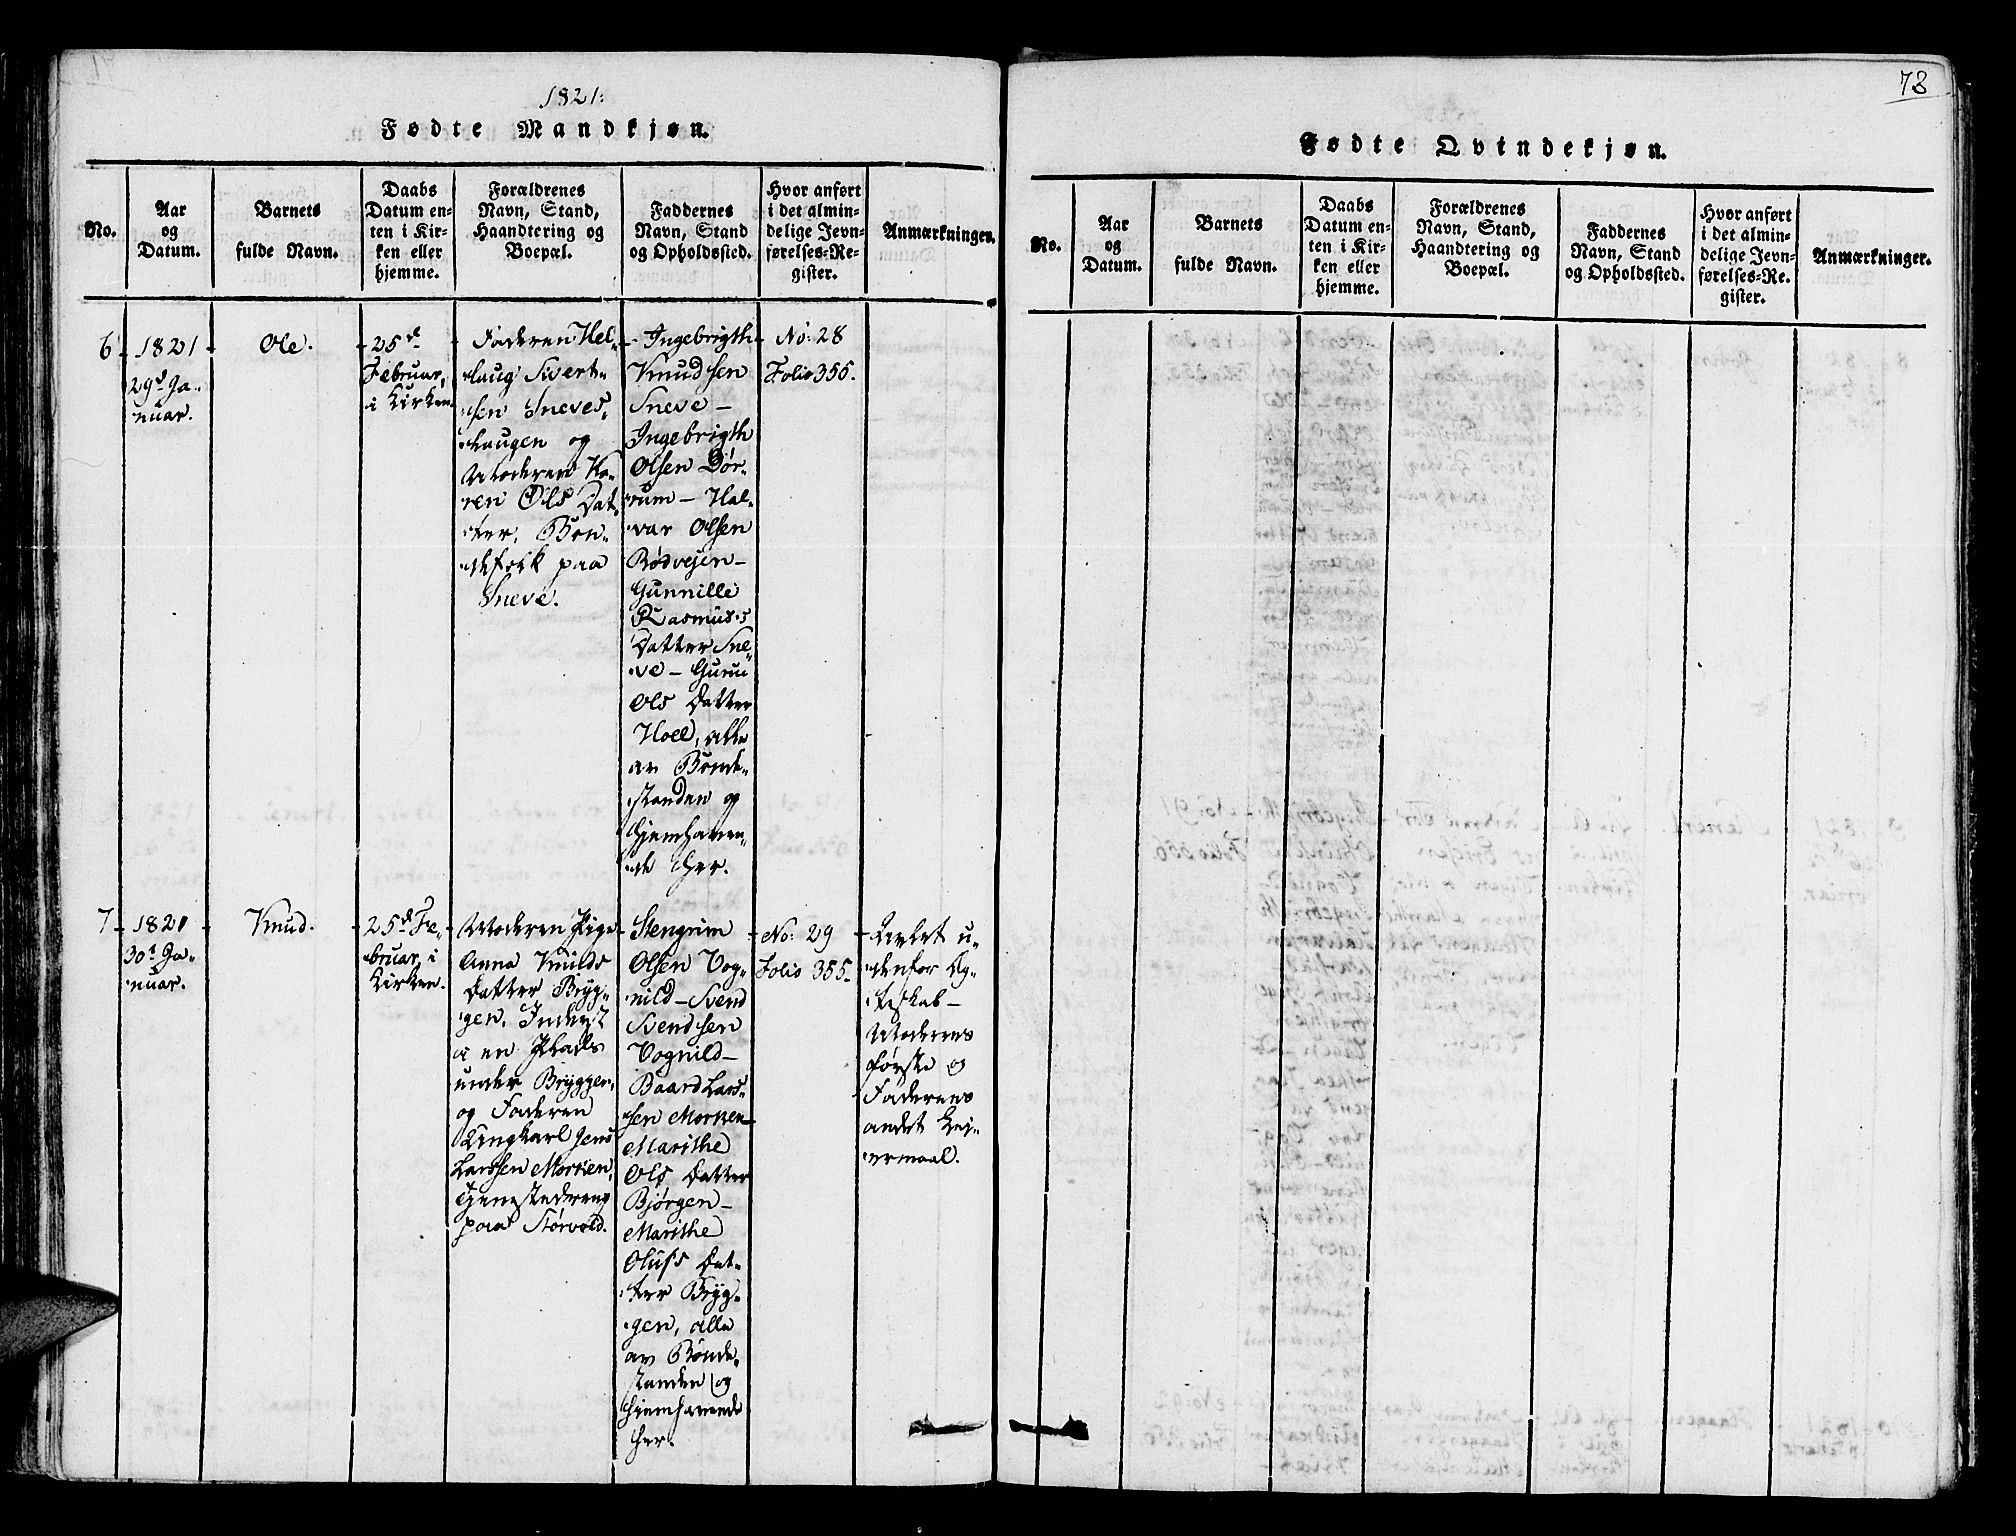 1821.
Fødte Mandkjøn.
No.
Aar
og
Datum.
Barnets
fulde Navn.
Daabs
Datum en-
ten i Kir-
ken eller
hjemme.
Forældrenes
Navn, Stand,
Haandtering og
Boepæl.
Faddernes
Navn, Stand
og Opholdssted.
Hvor anført
i det almin-
delige Jevn-
førelses-Re-
gister.
Anmærkninger.
6
1821
29d Ja-
nuar.
Ole.
25d
Februar,
i Kirken.
Faderen Hel-
laug Sivert-
sen Sneves-
haugen og
Moderen Ka-
ren Ols Dat-
ter, Bon-
defolk paa
Sneve.
Ingebrigth
Knudsen
Sneve –
Ingebrigth
Olsen Dør-
rum – Hal-
var Olsen
Rødvejen –
Gunnille
Rasmus-
Datter Sne-
ve – Guru
Ols Datter
Hoel, alle
av Bonde-
standen og
hjemhaven-
de her.
No: 28
Folio 355.
7
1821
30d Ja-
nuar.
Knud.
25d Fe-
bruar, i
Kirken.
Moderen Pige
Anna Knuds
Datter Bryg-
gen, Inderst
i en Plads
under Bryggen,
og Faderen
Ungkarl Jens
Larssen Morken,
Tjenestedreng
paa Størvold.
Stengrim
Olsen Vog-
nild – Svend
Svendsen
Vognild –
Baard Lars-
sen Morken –
Marithe
Ols Datter
Bjørgen –
Marithe
Olufs Dat-
ter Bryg-
gen, alle
av Bonde-
standen og
hjemhavende
her.
No: 29
Folio 355.
Avlet u-
denfor Æg-
teskab –
Moderens
første og
Faderens
andet Lei-
ermaal.
73
Fødte Qvindekjøn.
No.
Aar
og
Datum.
Barnets
fulde Navn.
Daabs
Datum en-
ten i Kir-
ken eller
hjemme.
Forældrenes
Navn, Stand,
Haandtering og
Boepæl.
Faddernes
Navn, Stand
og Opholdssted.
Hvor anført
i det almin-
delige Jevn-
førelses-Re-
gister.
Anmærkninger.